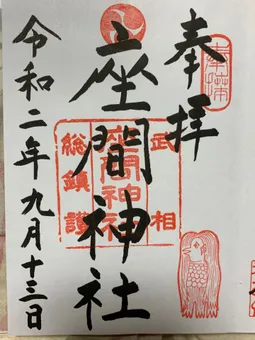 奉拝
座間神社
武相
総鎮護
座間神社
令和二年九月十三日